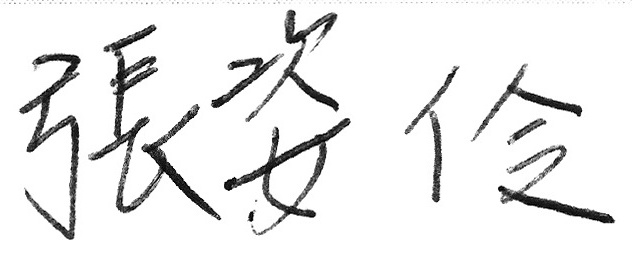 張姿伶